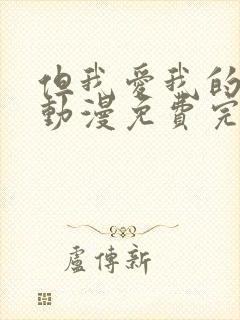 但我愛我的
動漫免費完
盧傳新